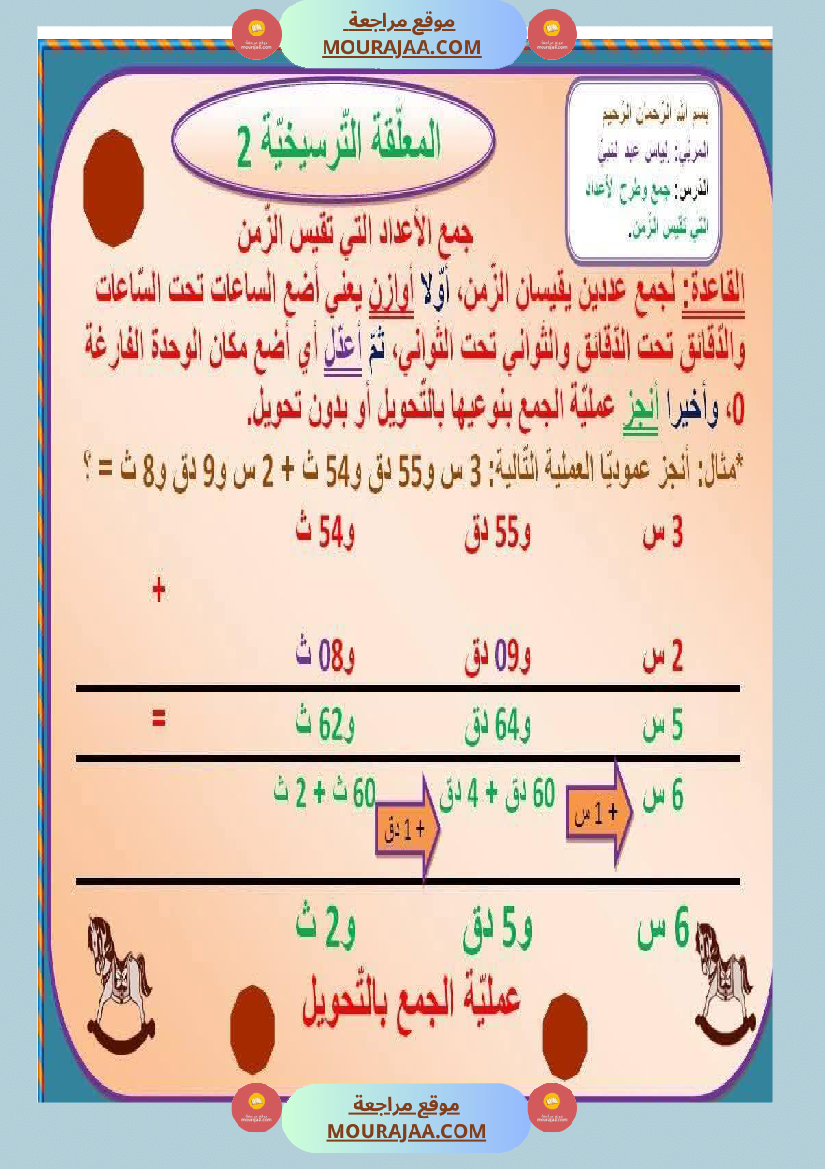 موقع مراجعة
MOURAJAA.COM
بسم الله الرّحمان الرّحيم
المربّي: إلياس عبد النبيّ
الدّرس: جمع وطرح الأعداد
التي تقيس الزّمن.
المعلّقة التّرسيخيّة 2
جمع الأعداد التي تقيس الزّمن
القاعدة: لجمع عددين يقيسان الزّمن، أوّلا أوازن يعني أضع الساعات تحت السّاعات
والدّقائق تحت الدّقائق والثّواني تحت الثّواني، ثمّ أعدّل أي أضع مكان الوحدة الفارغة
0، وأخيرا أنجز عمليّة الجمع بنوعيها بالتّحويل أو بدون تحويل.
*مثال: أنجز عموديّا العملية التّالية: 3 س و55 دق و54 ث + 2 س و9 دق و8 ث = ؟
3 س و55 دق و54 ث
+
2 س و09 دق و08 ث
5 س و64 دق و62 ث =
6 س + 1 س 60 دق + 4 دق + 1 دق 60 ث + 2 ث
6 س و5 دق و2 ث
عمليّة الجمع بالتّحويل
موقع مراجعة
MOURAJAA.COM